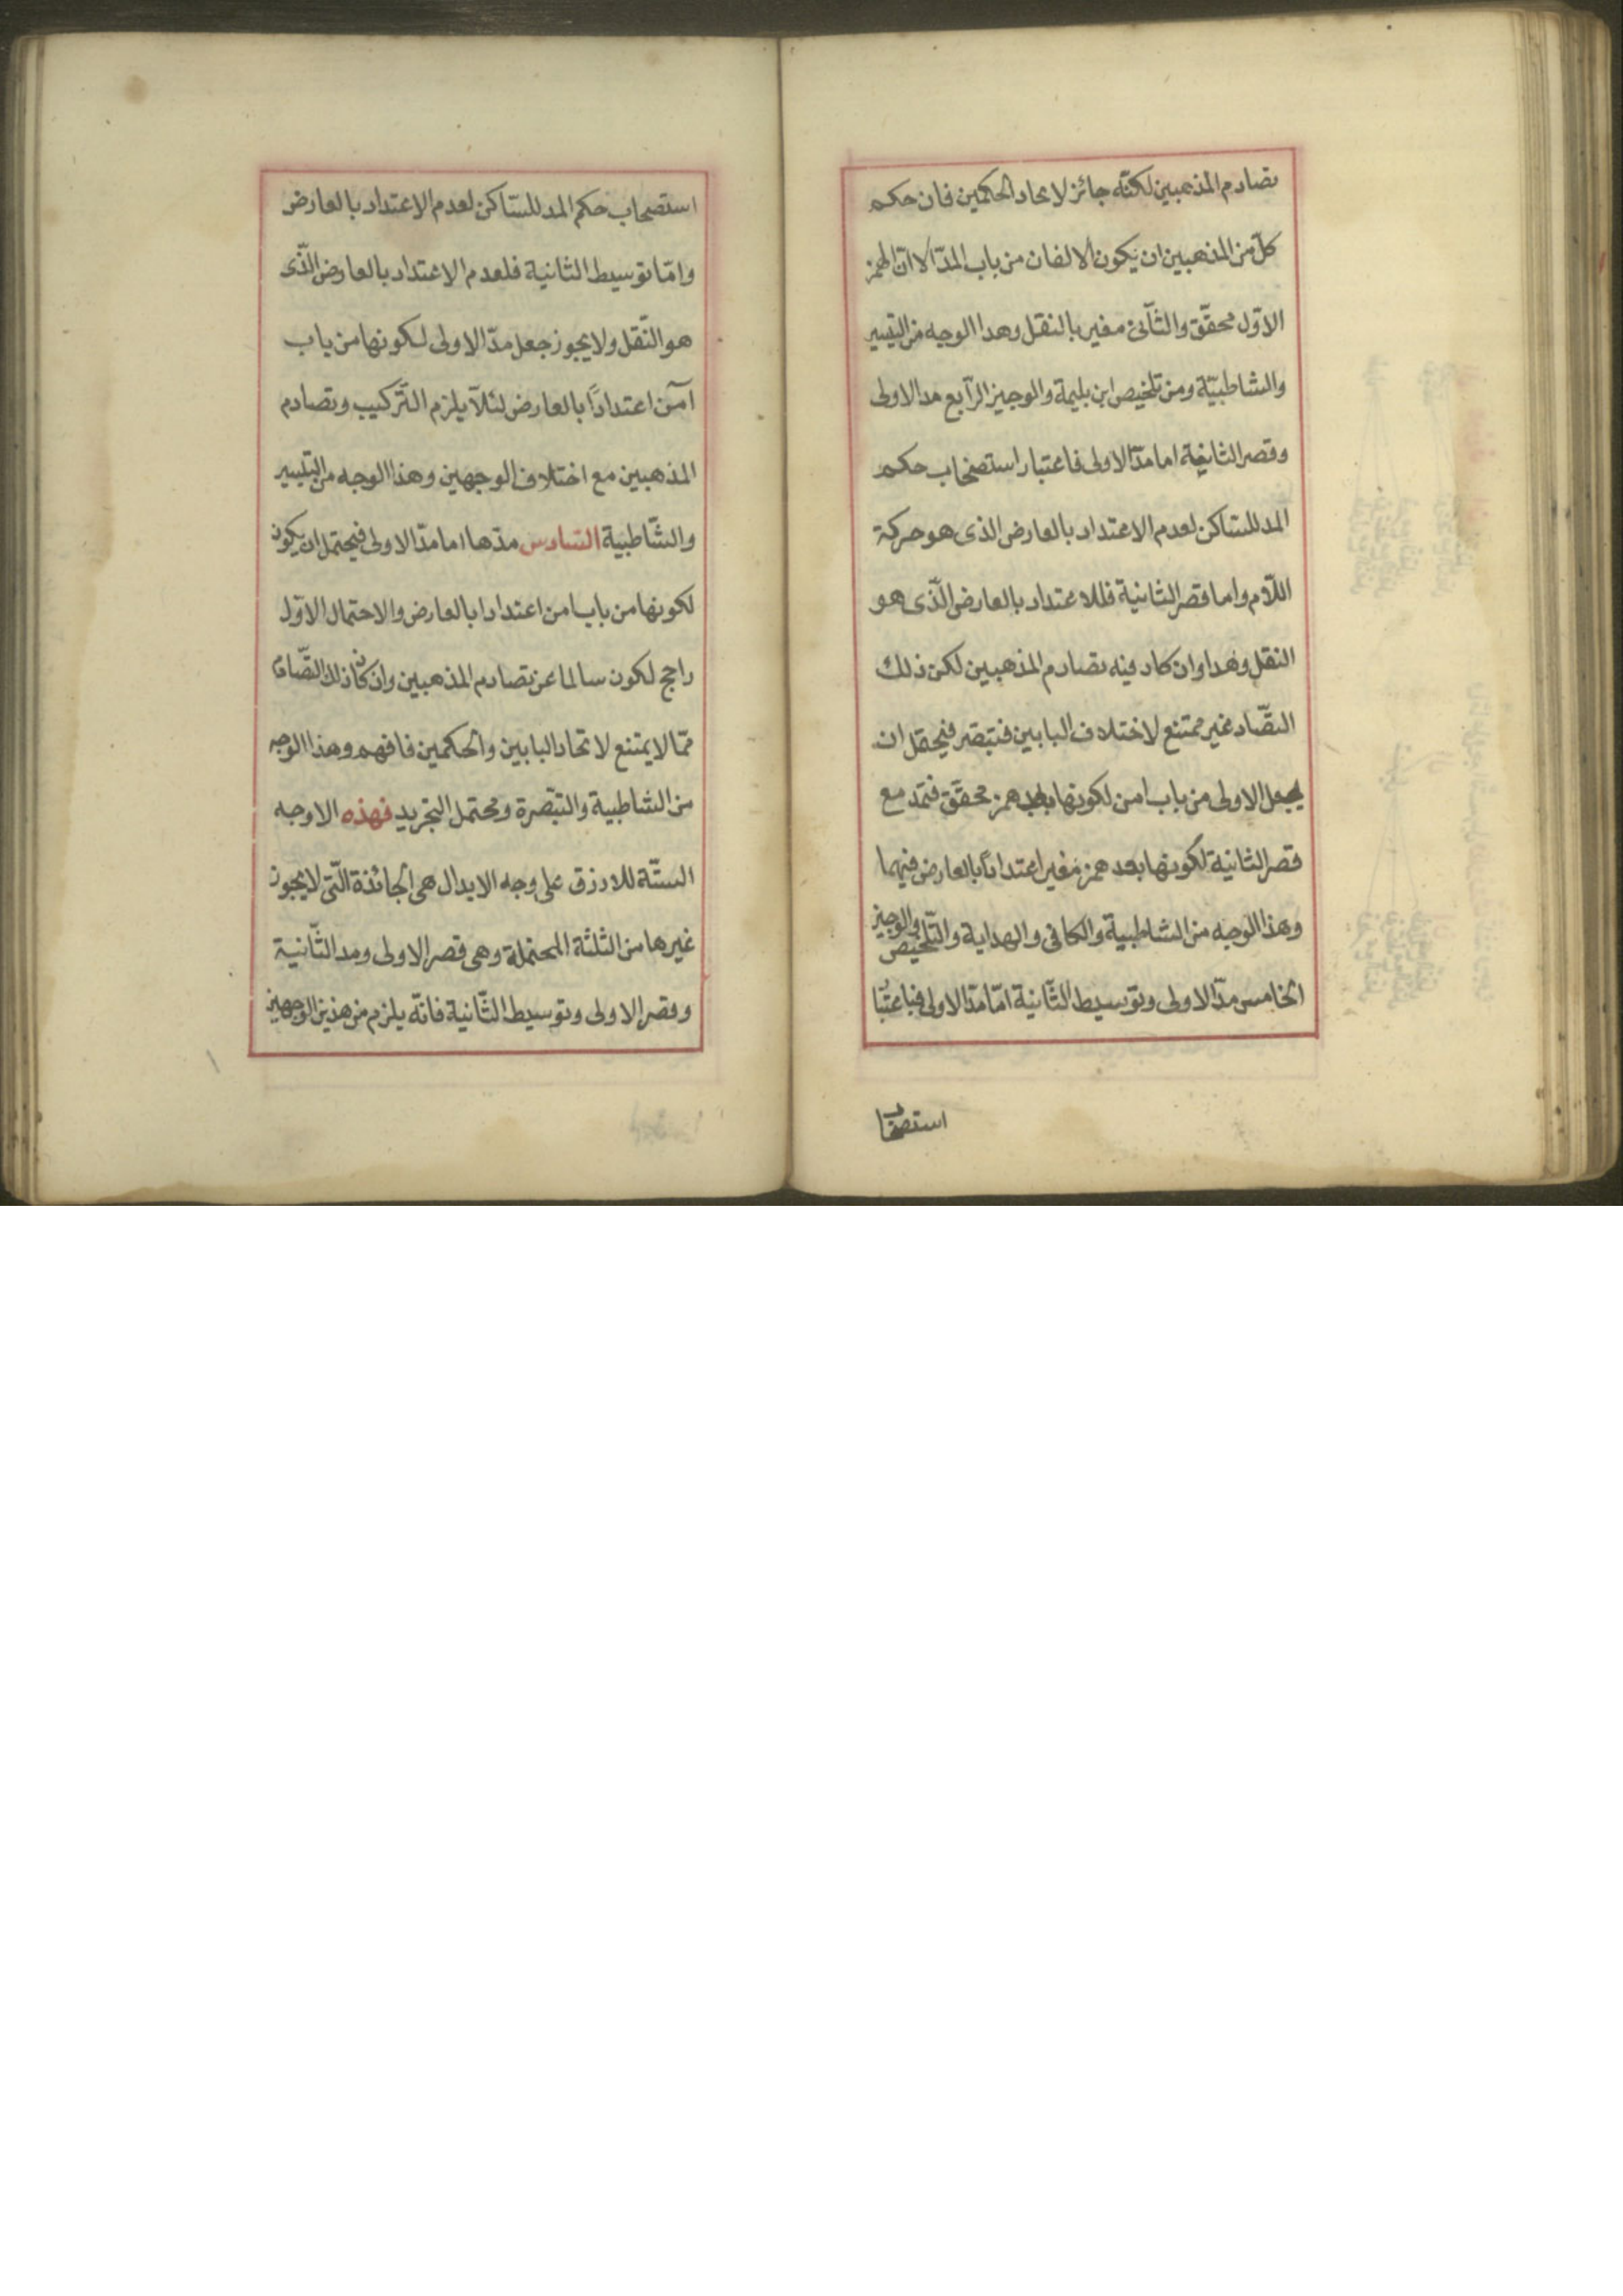 تصادم المذهبين لكنّه جائز لاتحاد الحكمين فان حكم
كلّ من المذهبين ان يكون الالفان من باب المدّ الا انّ الهمز
الاوّل محقّق والثّانى مغير بالنقل وهذا الوجه من التيسير
والشاطبيّة ومن تلخيص ابن بليمة والوجيز الرّابع مد الاولى
وقصر الثانية اما مدّ الاولى فاعتبار استصحاب حكم
المد للسّاكن لعدم الاعتداد بالعارض الذى هو حركة
اللّام واما قصر الثانية فللاعتداد بالعارض الّذى هو
النقل وهذا وان كاد فيه تصادم المذهبين لكن ذلك
التصّاد غير ممتنع لاختلاف البابين فتبصّر فيحتمل ان
يجعل الاولى من باب امن لكونها بعد همز محقّق فتمدّ مع
قصر الثانية لكونها بعد همز مغير اعتدادًا بالعارض فيهما
وهذا الوجه من الشاطبية والكافى والهداية والتّلخيص والوجيز
الخامس مدّ الاولى وتوسيط الثّانية امّا مدّ الاولى فباعتبا
استصحاب
استصحاب حكم المد للسّاكن لعدم الاعتداد بالعارض
وامّا توسيط الثانية فلعدم الاعتداد بالعارض الّذى
هو النّقل ولا يجوز جعل مدّ الاولى لكونها من باب
آمن اعتدادًا بالعارض لئلّا يلزم التّركيب وتصادم
المذهبين مع اختلاف الوجهين وهذا الوجه من التيسير
والشّاطبية السّادس مدّها اما مدّ الاولى فيحتمل ان يكون
لكونها من باب امن اعتدادا بالعارض والاحتمال الاوّل
راجح لكون سالما عن تصادم المذهبين وان كان ذلك التصّاد
ممّا لا يمتنع لاتحاد البابين والحكمين فافهم وهذا الوجه
من الشاطبية والتبّصرة ومحتمل التجريد فهذه الاوجه
الستّة للازرق على وجه الابدال هى الجائزة الّتى لا يجوز
غيرها من الثلثة المحتملة وهى قصر الاولى ومد الثّانية
وقصر الاولى وتوسيط الثّانية فانّه يلزم من هذين الوجهين